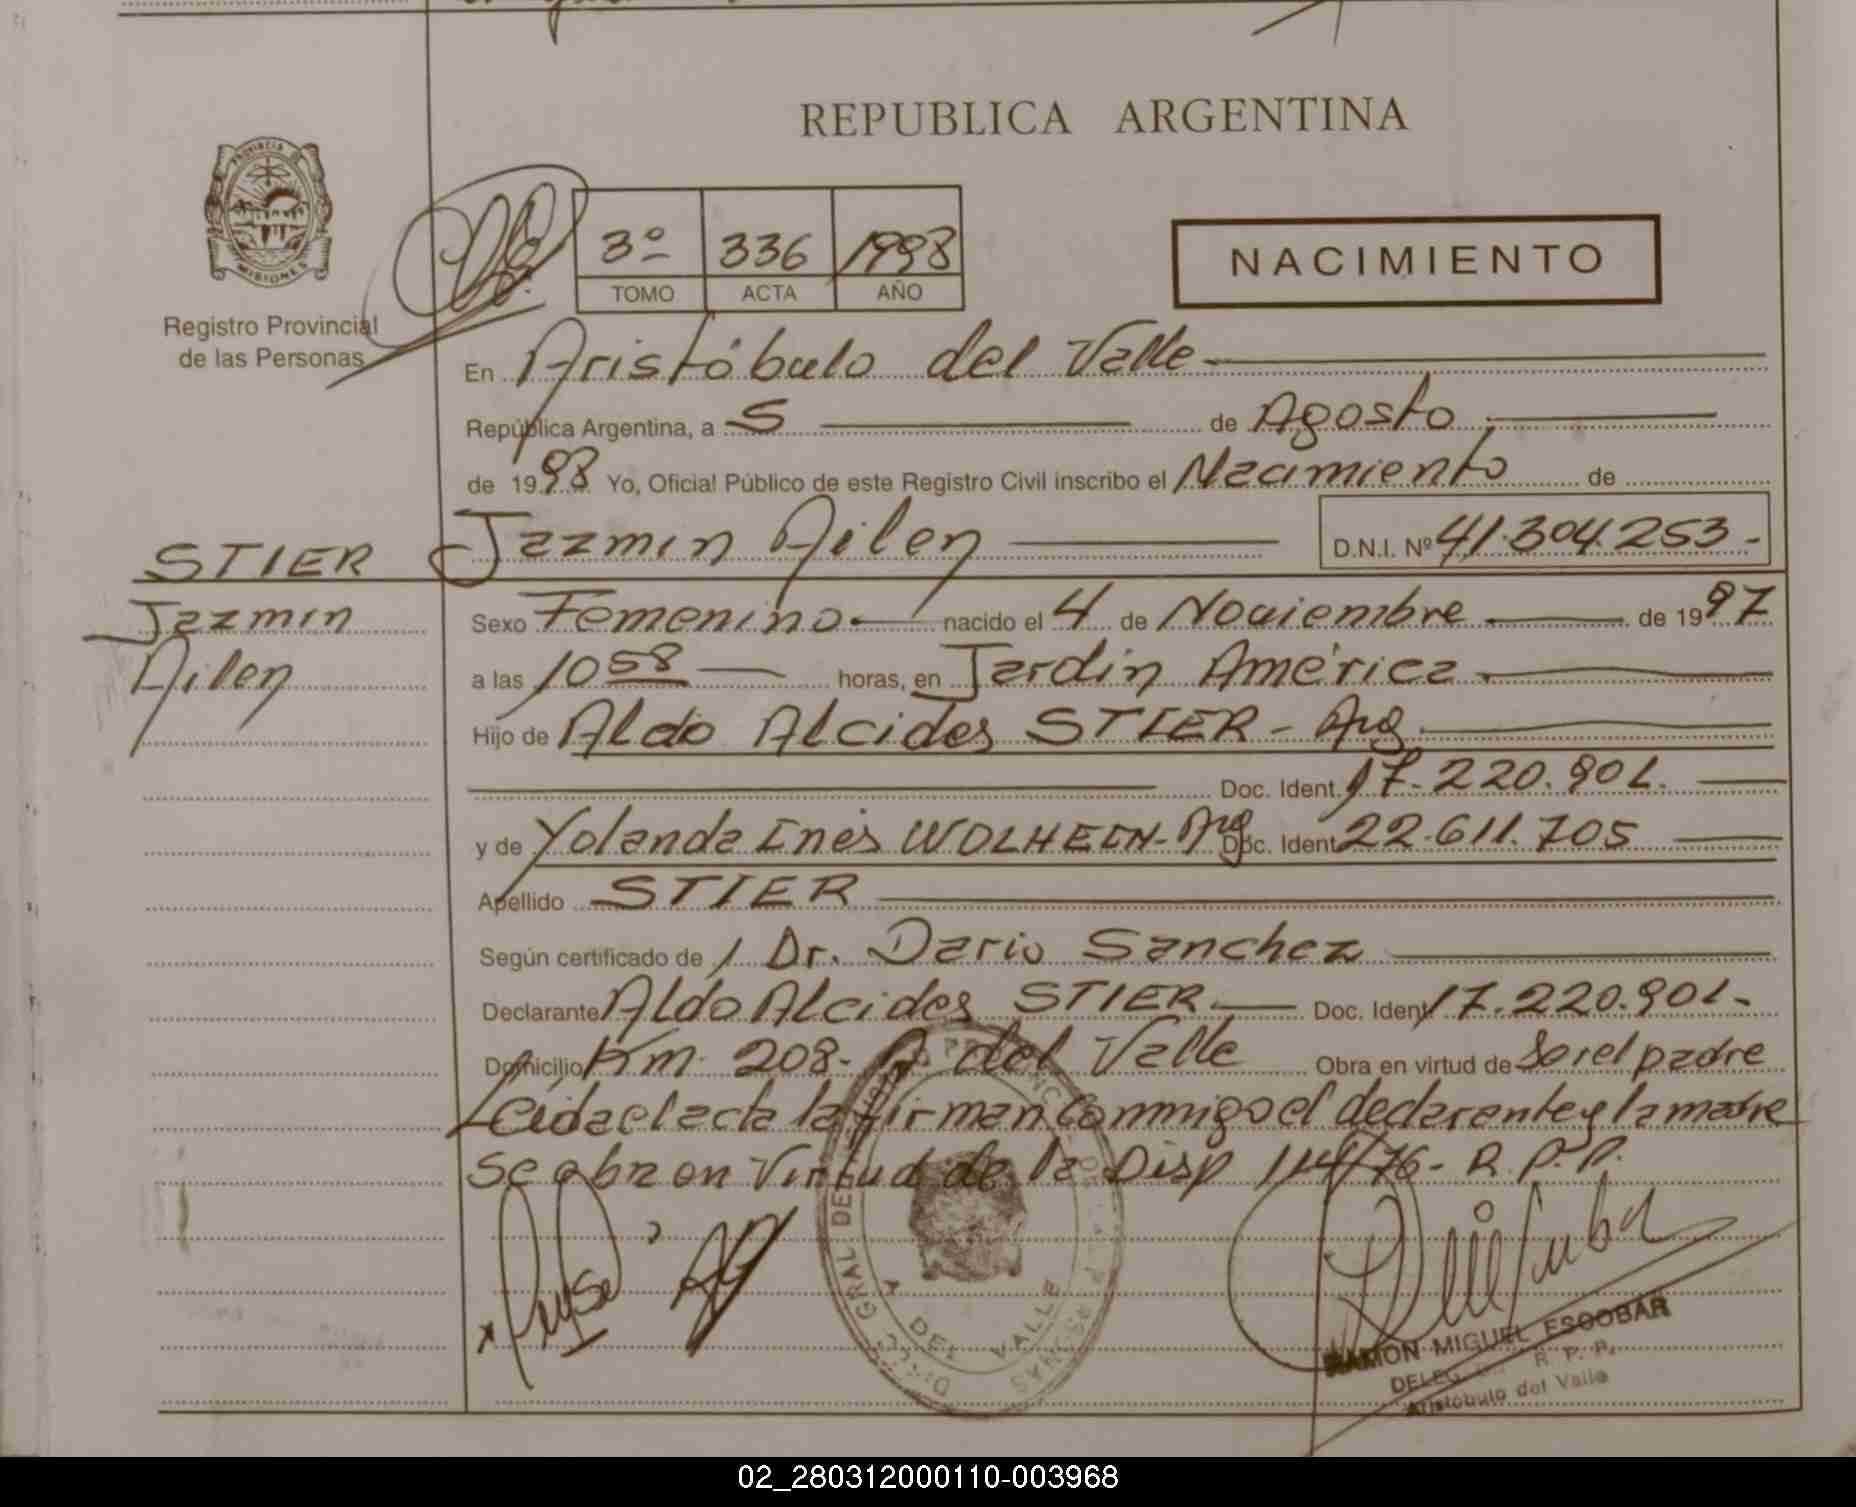 REPUBLICA ARGENTINA
PROVINCIA DE
MISIONES
Registro Provincial
de las Personas
3º 336 1998
TOMO ACTA AÑO
NACIMIENTO
En Aristóbulo del Valle
República Argentina, a 5 de Agosto
de 1998 Yo, Oficial Público de este Registro Civil inscribo el Nacimiento de
Jazmin Ailen D.N.I. Nº 41.304.253.-
STIER
Jazmin
Ailen
Sexo Femenino nacido el 4 de Noviembre de 1997
a las 10 58 horas, en Jardín América
Hijo de Aldo Alcides STIER - Arg
Doc. Ident. 17.220.901.
y de Yolanda Inés WOLHEIN - Arg Doc. Ident 22.611.705
Apellido STIER
Según certificado de 1 Dr. Dario Sanchez
Declarante Aldo Alcides STIER Doc. Ident 17.220.901.-
Domicilio Km. 208- A. del Valle Obra en virtud de Ser el padre
Leída el acta la firman conmigo el declarante y la madre
Se obra en Virtud de la Disp 114/76- R.P.P.
A. DEL VALLE
RAMON MIGUEL ESCOBAR
R. P. P.
Aristóbulo del Valle
02_280312000110-003968